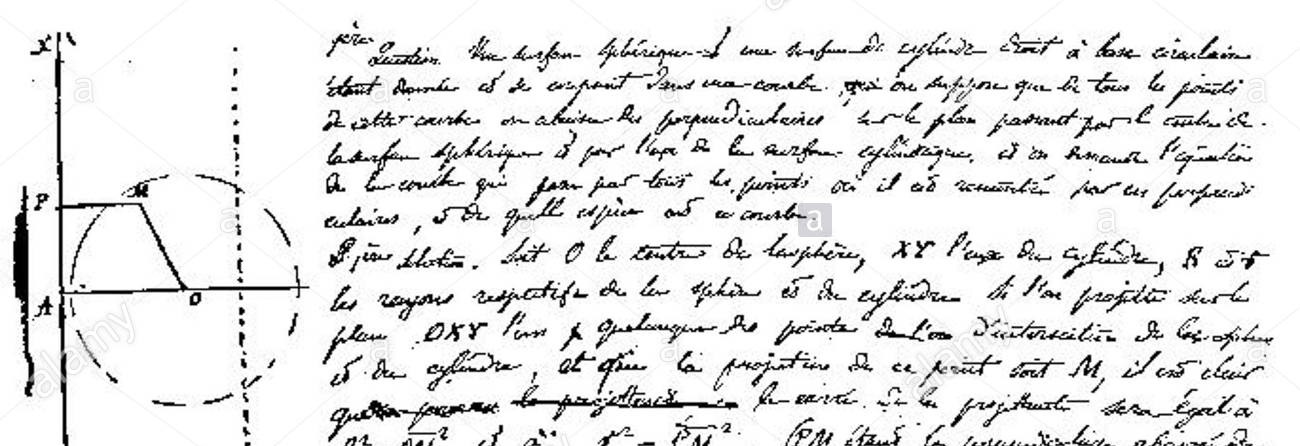 X
P
M
A
O
1ère Question. Une surface sphérique et une surface de cylindre droit à base circulaire
étant données et se coupant dans une courbe, on suppose que de tous les points
de cette courbe on abaisse des perpendiculaires sur le plan passant par le centre de
la surface sphérique et par l'axe de la surface cylindrique, et on demande l'équation
de la courbe qui passe par tous les points où il est rencontré par ces perpendi
culaires, et de quelle espèce est cette courbe.
1ère Solution. Soit O le centre de la sphère, XY l'axe du cylindre, R et r
les rayons respectifs de la sphère et du cylindre. Si l'on projette sur le
plan OXY l'un quelconque des points d'intersection de la sphère
et du cylindre, et que la projection de ce point soit M, il est clair
que le carré de la projettante sera égal à
PM étant la perpendiculaire abaissée de
alamy
alamy